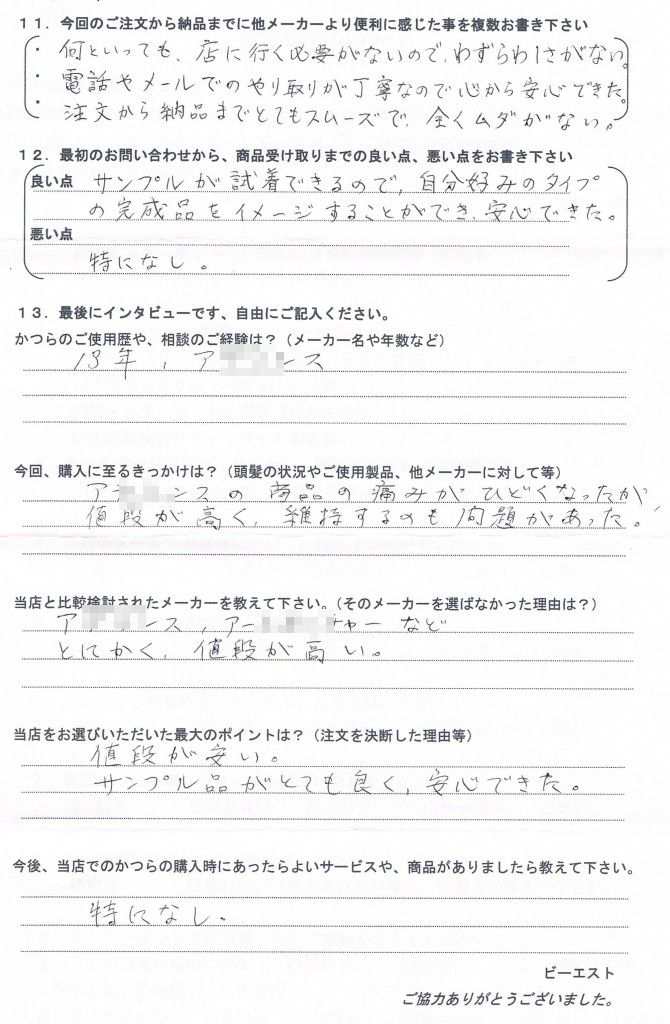 11．今回のご注文から納品までに他メーカーより便利に感じた事を複数お書き下さい
・何といっても、店に行く必要がないので、わずらわしさがない。
・電話やメールでのやり取りが丁寧なので心から安心できた。
・注文から納品までとてもスムーズで、全くムダがない。
12．最初のお問い合わせから、商品受け取りまでの良い点、悪い点をお書き下さい
良い点 サンプルが試着できるので、自分好みのタイプ
の完成品をイメージすることができ、安心できた。
悪い点
特になし。
13．最後にインタビューです、自由にご記入ください。
かつらのご使用歴や、相談のご経験は？（メーカー名や年数など）
13年、ア ンス
今回、購入に至るきっかけは？（頭髪の状況やご使用製品、他メーカーに対して等）
ア ンスの商品の痛みがひどくなったが
値段が高く、維持するのも問題があった。
当店と比較検討されたメーカーを教えて下さい。（そのメーカーを選ばなかった理由は？）
ア ンス、アー チャーなど
とにかく、値段が高い。
当店をお選びいただいた最大のポイントは？（注文を決断した理由等）
値段が安い。
サンプル品がとても良く、安心できた。
今後、当店でのかつらの購入時にあったらよいサービスや、商品がありましたら教えて下さい。
特になし。
ビーエスト
ご協力ありがとうございました。